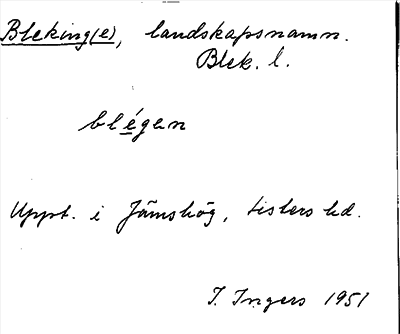 Bleking(e), landskapsnamn.
Blek. l.
blégen
Uppt. i Jämshög, Listers hd.
I. Ingers 1951